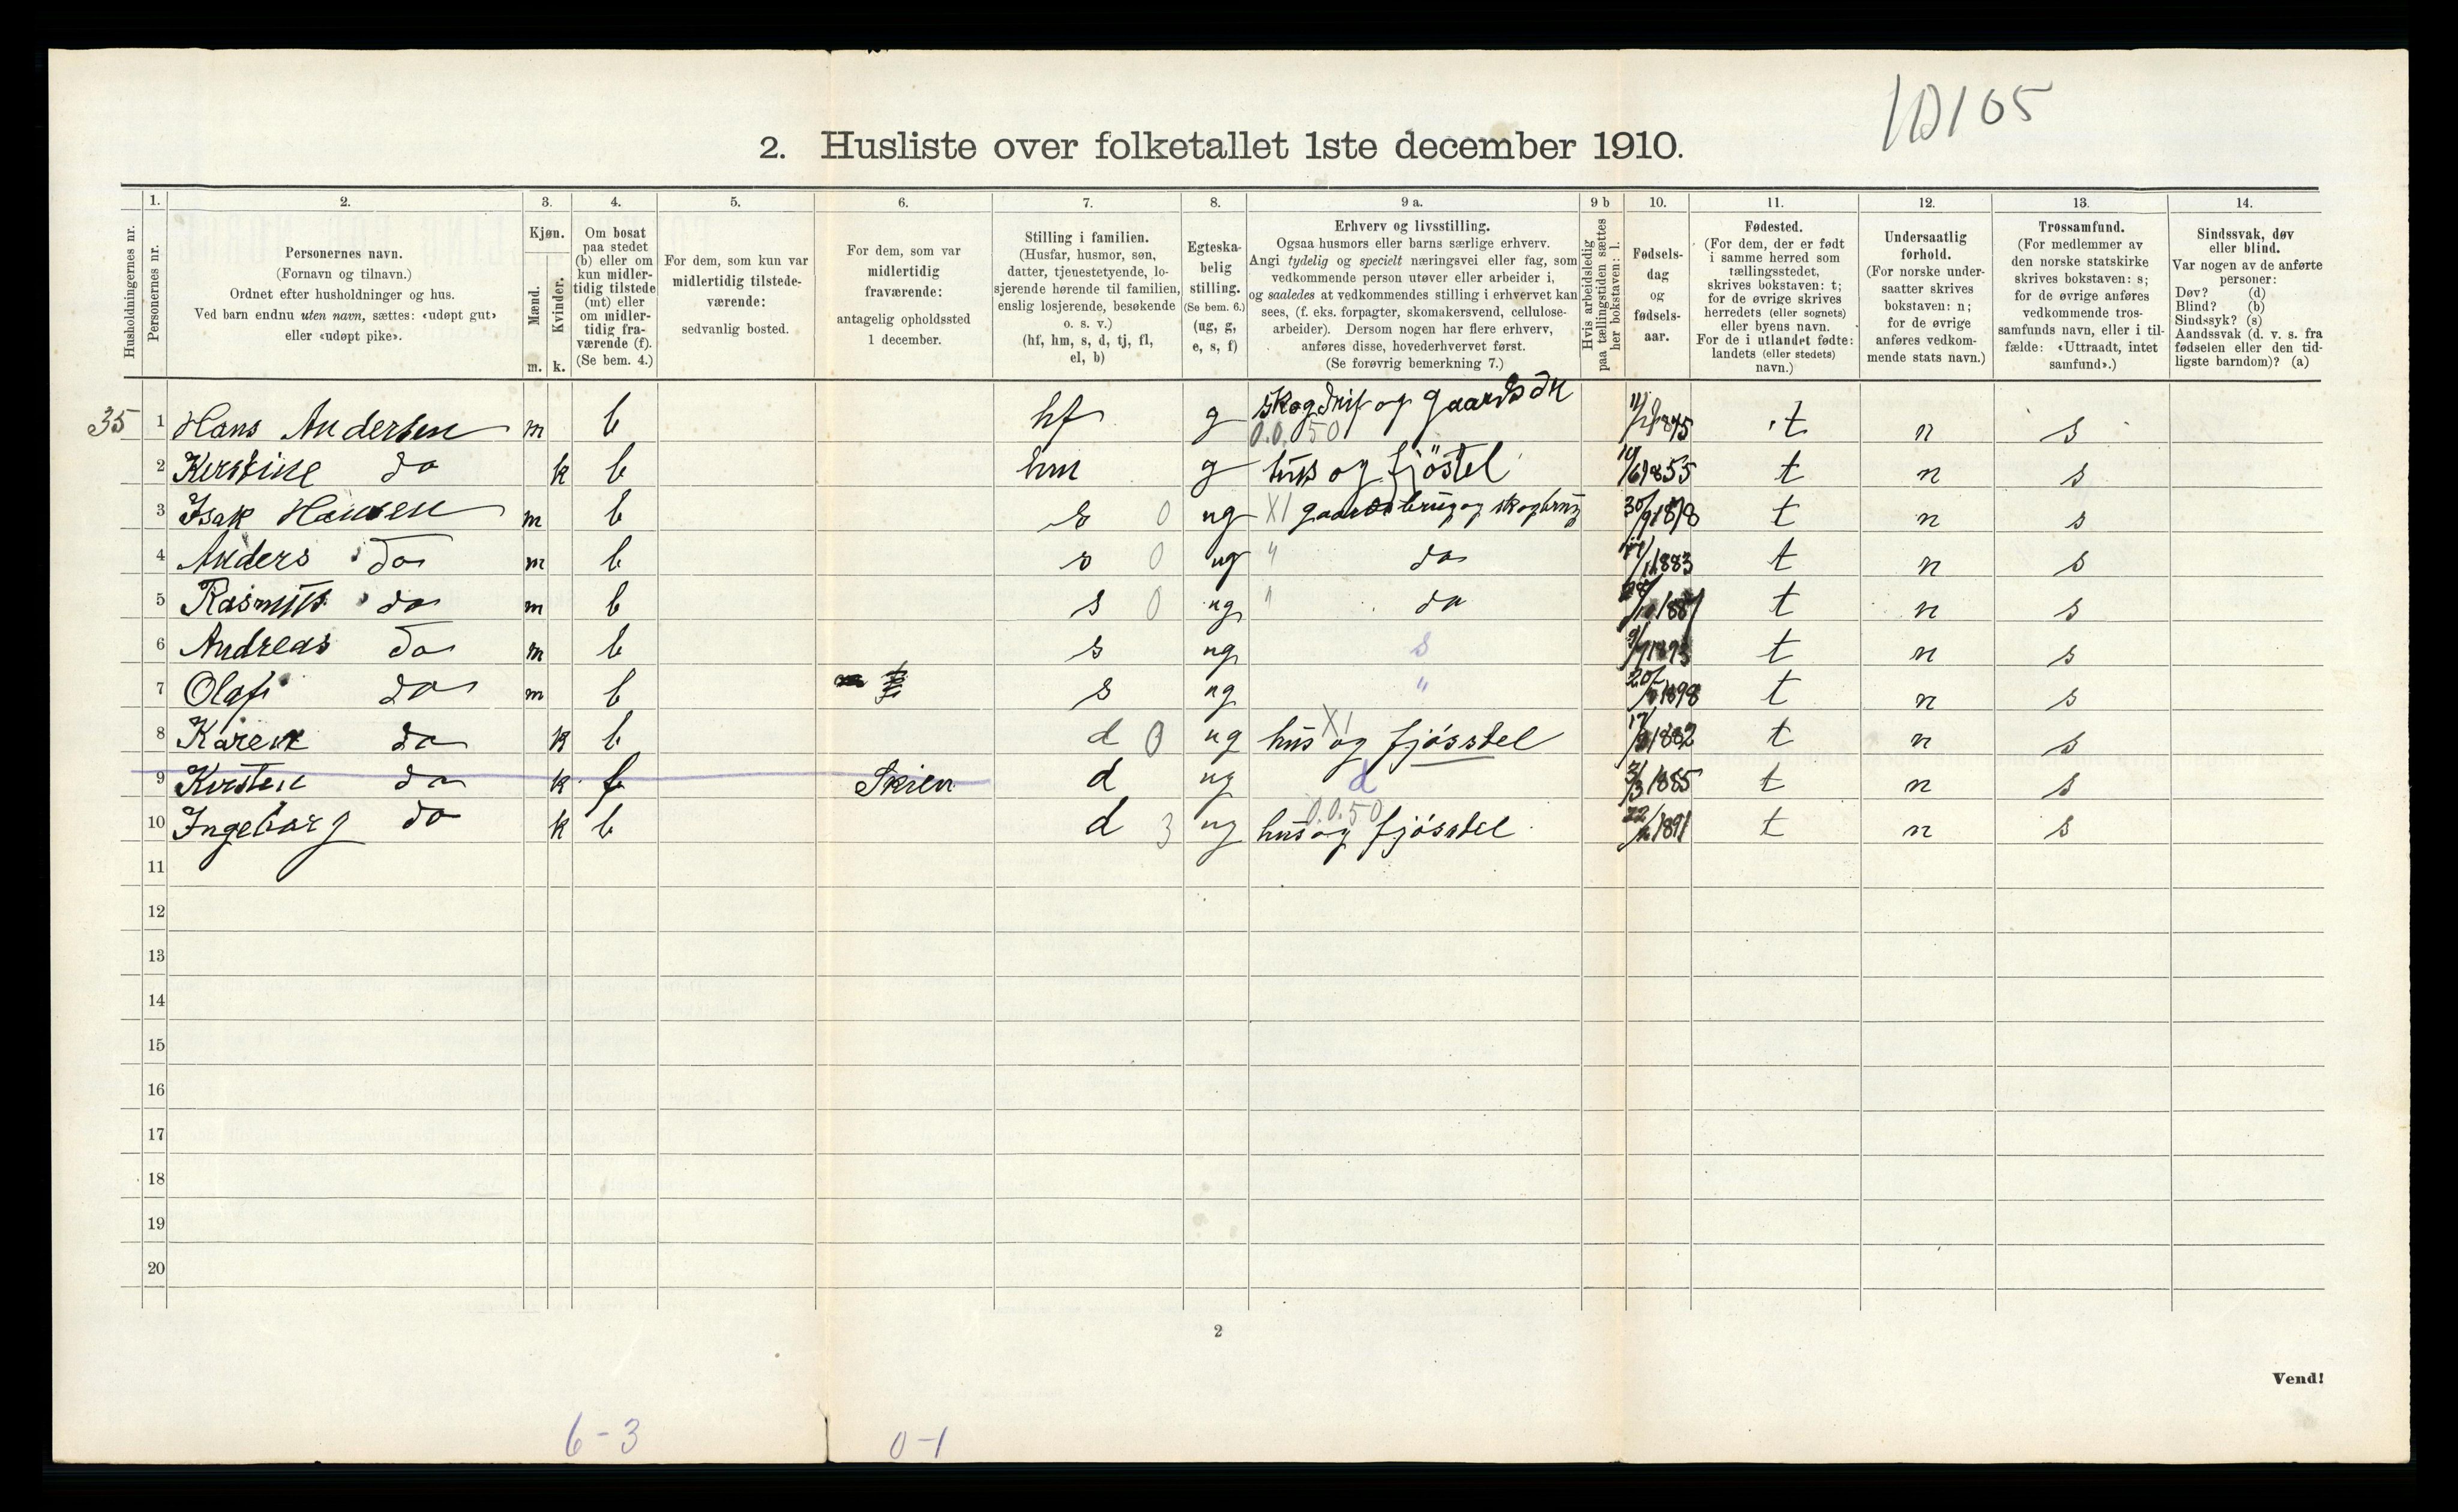 10105
2. Husliste over folketallet 1ste december 1910.
Husholdningernes nr.
1.
Personernes nr.
2.
Personernes navn.
(Fornavn og tilnavn.)
Ordnet efter husholdninger og hus.
Ved barn endnu uten navn, sættes: «udøpt gut»
eller «udøpt pike».
3.
Kjøn.
Mænd.
Kvinder.
m. k.
4.
Om bosat
paa stedet
(b) eller om
kun midler-
tidig tilstede
(mt) eller
om midler-
tidig fra-
værende (f).
(Se bem. 4.)
5.
For dem, som kun var
midlertidig tilstede-
værende:
sedvanlig bosted.
6.
For dem, som var
midlertidig
fraværende:
antagelig opholdssted
1 december.
7.
Stilling i familien.
(Husfar, husmor, søn,
datter, tjenestetyende, lo-
sjerende hørende til familien,
enslig losjerende, besøkende
o. s. v.)
(hf, hm, s, d, tj, fl,
el, b)
8.
Egteska-
belig
stilling.
(Se bem. 6.)
(ug, g,
e, s, f)
9 a.
Erhverv og livsstilling.
Ogsaa husmors eller barns særlige erhverv.
Angi tydelig og specielt næringsvei eller fag, som
vedkommende person utøver eller arbeider i,
og saaledes at vedkommendes stilling i erhvervet kan
sees, (f. eks. forpagter, skomakersvend, cellulose-
arbeider). Dersom nogen har flere erhverv,
anføres disse, hovederhvervet først.
(Se forøvrig bemerkning 7.)
9 b
Hvis arbeidsledig
paa tællingstiden sættes
her bokstaven: l.
10.
Fødsels-
dag
og
fødsels-
aar.
11.
Fødested.
(For dem, der er født
i samme herred som
tællingsstedet,
skrives bokstaven: t;
for de øvrige skrives
herredets (eller sognets)
eller byens navn.
For de i utlandet fødte:
landets (eller stedets)
navn.)
12.
Undersaatlig
forhold.
(For norske under-
saatter skrives
bokstaven: n;
for de øvrige
anføres vedkom-
mende stats navn.)
13.
Trossamfund.
(For medlemmer av
den norske statskirke
skrives bokstaven: s;
for de øvrige anføres
vedkommende tros-
samfunds navn, eller i til-
fælde: «Uttraadt, intet
samfund».)
14.
Sindssvak, døv
eller blind.
Var nogen av de anførte
personer:
Døv? (d)
Blind? (b)
Sindssyk? (s)
Aandssvak (d. v. s. fra
fødselen eller den tid-
ligste barndom)? (a)
35 1 Hans Andersen m b hf g skogdrif og gaardsdr t n s
0.0.50
2 Kirstine do k b hm g hus og fjöstel 1855 t n s
3 Isak Hansen m b s 0 ug XI gaardsbrug og skogbrug 30/9 1878 t n s
4 Anders do m b s 0 ug " do 1883 t n s
5 Rasmus do m b s 0 ug " do t n s
6 Andreas do m b s ug s t n s
7 Olaf do m b s ug " 1898 t n s
8 Karen do k b d 0 ug XI hus og fjösstel 1882 t n s
9 Kirsten do k f Skien d ug d 1885 t n s
10 Ingeborg do k b d 3 ug 0.0.50 hus og fjösstel 1891 t n s
11
12
13
14
15
16
17
18
19
20
2
Vend!
6-3
0-1